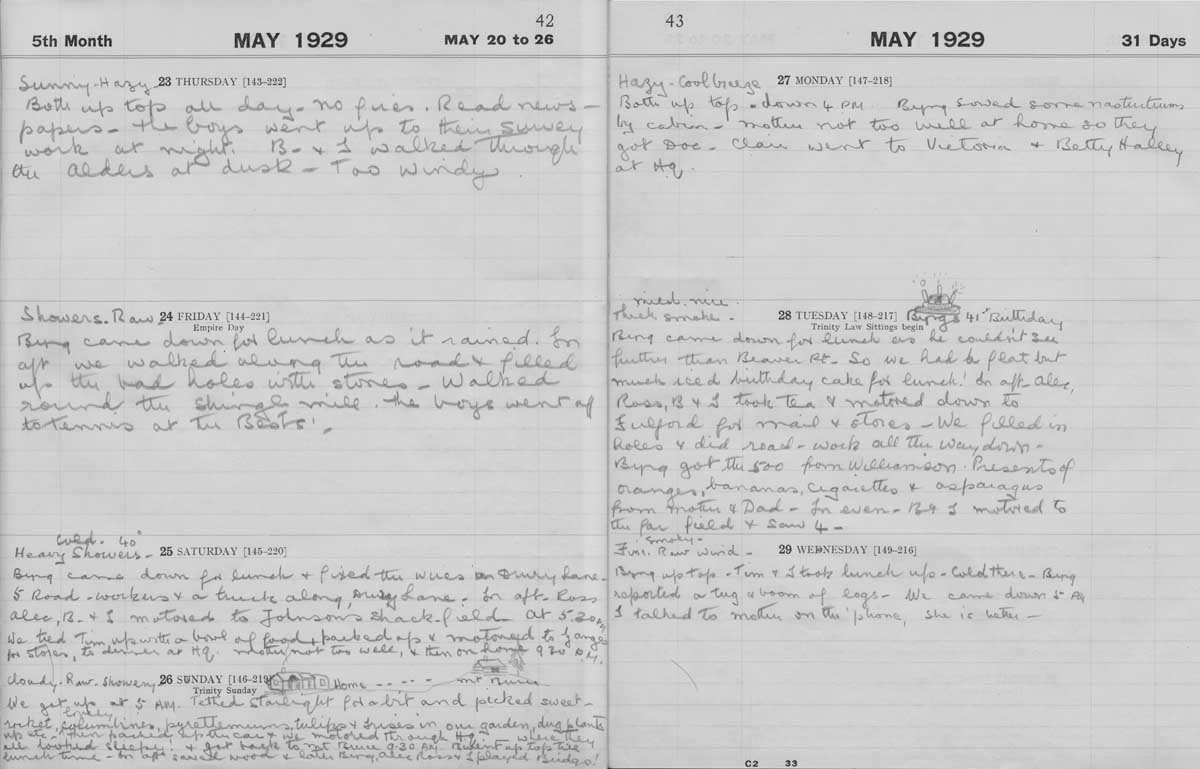 42
5th Month MAY 1929 MAY 20 to 26
Sunny-Hazy 23 THURSDAY [143-222]
Both up top all day - no fires. Read news-
papers - the boys went up to their survey
work at night. B. & I walked through
the alders at dusk - Too windy
Showers. Raw. 24 FRIDAY [144-221]
Empire Day
Byng came down for lunch as it rained. In
aft we walked along the road & filled
up the bad holes with stones - Walked
round the shingle mill. The boys went off
to tennis at the Bests'.
Cold. 40°
Heavy Showers - 25 SATURDAY [145-220]
Byng came down for lunch & fixed the wires on Drury Lane.
5 Road-workers & a truck along Drury Lane. In aft Ross
Alec, B. & I motored to Johnson's shack-field. At 5.30 PM
We tied Tim up with a bowl of food & packed up & motored to Ganges
for stores, to dinner at HQ. Mother not too well, & then on home 9.30 P.M.
Cloudy. Raw. Showery 26 SUNDAY [146-219] Home - - - - - Mt Bruce
Trinity Sunday
We got up at 5 AM. Tetted Starlight for a bit and picked sweet-
rocket, lovely columbines, pyrethemums, tulips & irises in our garden, dug plants
up etc - then packed up the car & we motored through HQ - where they
all looked sleepy! & got back to Mt Bruce 9.30 AM. B. went up top till
lunch time - In aft sawed wood & later Byng, Alec, Ross & I played Bridge!
43
MAY 1929 31 Days
Hazy - Cool breeze 27 MONDAY [147-218]
Both up top - down 4 PM. Byng sowed some nasturtiums
by cabin - Mother not too well at home so they
got Doc - Clare went to Victoria & Betty Halley
at HQ.
mild. nice.
Thick smoke - 28 TUESDAY [148-217] Byng's 41st Birthday
Trinity Law Sittings begin
Byng came down for lunch as he couldn't see
further than Beaver Pt - So we had a flat but
much iced birthday cake for lunch! In aft Alec,
Ross, B & I took tea & motored down to
Fulford for mail & stores - We filled in
holes & did road-work all the way down -
Byng got the 500 from Williamson. Presents of
oranges, bananas, cigarettes & asparagus
from Mother & Dad - In even - B & I motored to
the far field & saw 4 -
smoky -
Fine. Raw wind - 29 WEDNESDAY [149-216]
Byng up top - Tim & I took lunch up - Cold there - Byng
reported a tug & boom of logs - We came down 5 PM
I talked to mother on the 'phone, she is better -
C2 33